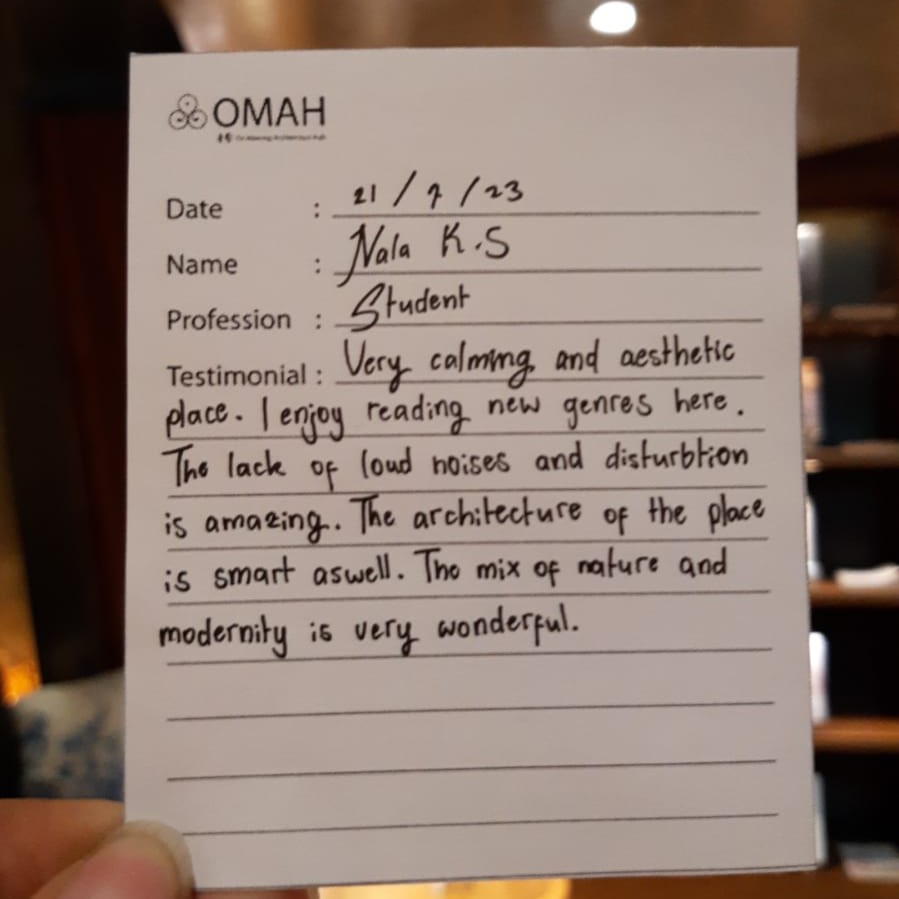 OMAH
Date : 21 / 7 / 23
Name : Nala K.S
Profession : Student
Testimonial : Very calming and aesthetic
place. I enjoy reading new genres here.
The lack of loud noises and disturbtion
is amazing. The architecture of the place
is smart aswell. The mix of nature and
modernity is very wonderful.